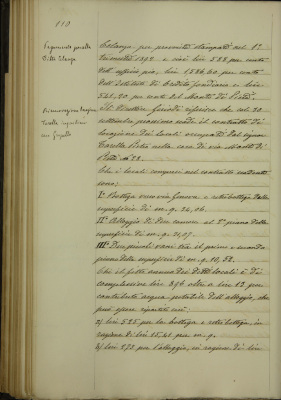 110
Pagamento parcelle
Ditta Celanza
Celanza per proventi stampati nel 1°
trimestre 1892 e cioè lire 588 per conto
dell'ufficio pio, lire 1526,60 per conto
dell'Istituto di Credito fondiario e lire
521,20 per conto del Monte di Pietà.
Il Direttore quindi riferisce che col 30
settembre prossimo scade il contratto di
locazione dei locali occupati dal signor
Carella Pietro nella casa di via Monte di
Pietà n° 22.
Che i locali compresi nel contratto suddetto
sono:
I° Bottega verso via Genova e retro bottega della
superficie di m. q. 34,06.
II° Alloggio di due camere al 2° piano della
superficie di m. q. 31,17.
III° Due piccoli vani tra il primo e secondo
piano della superficie di m. q. 10,52.
Che il fitto annuo dei detti locali è di
complessive lire 896 oltre a lire 12 per
contributo acqua potabile dell'alloggio, che
può essere ripartito così:
a) lire 525 per la bottega e retro bottega, in
ragione di lire 15,41 per m. q.
b) lire 272 per l'alloggio, in ragione di lire